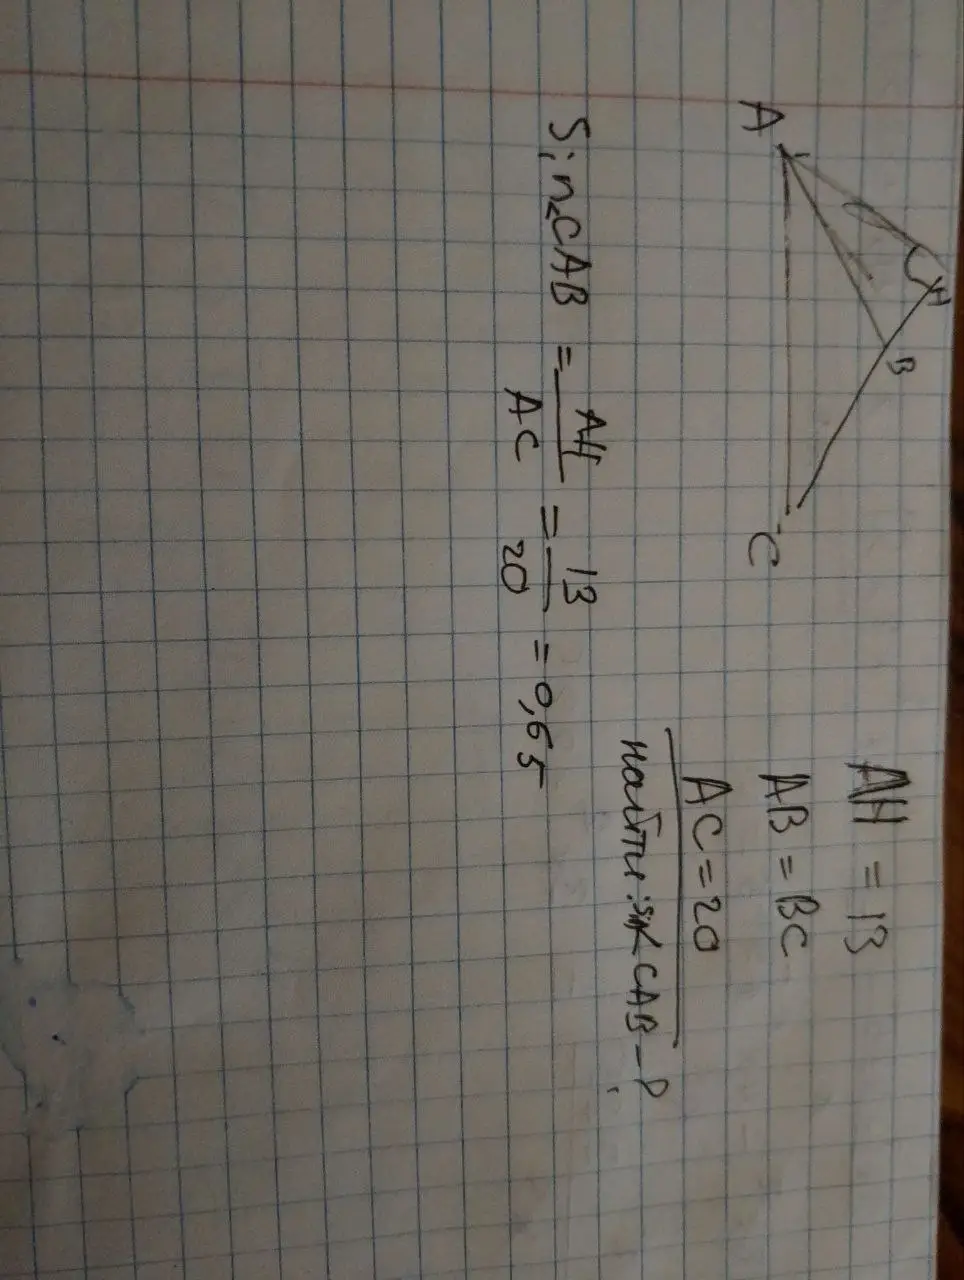 A
H
B
C
AH = 13
AB = BC
AC = 20
найти: sin∠CAB - ?
Sin∠CAB = AH/AC = 13/20 = 0,65